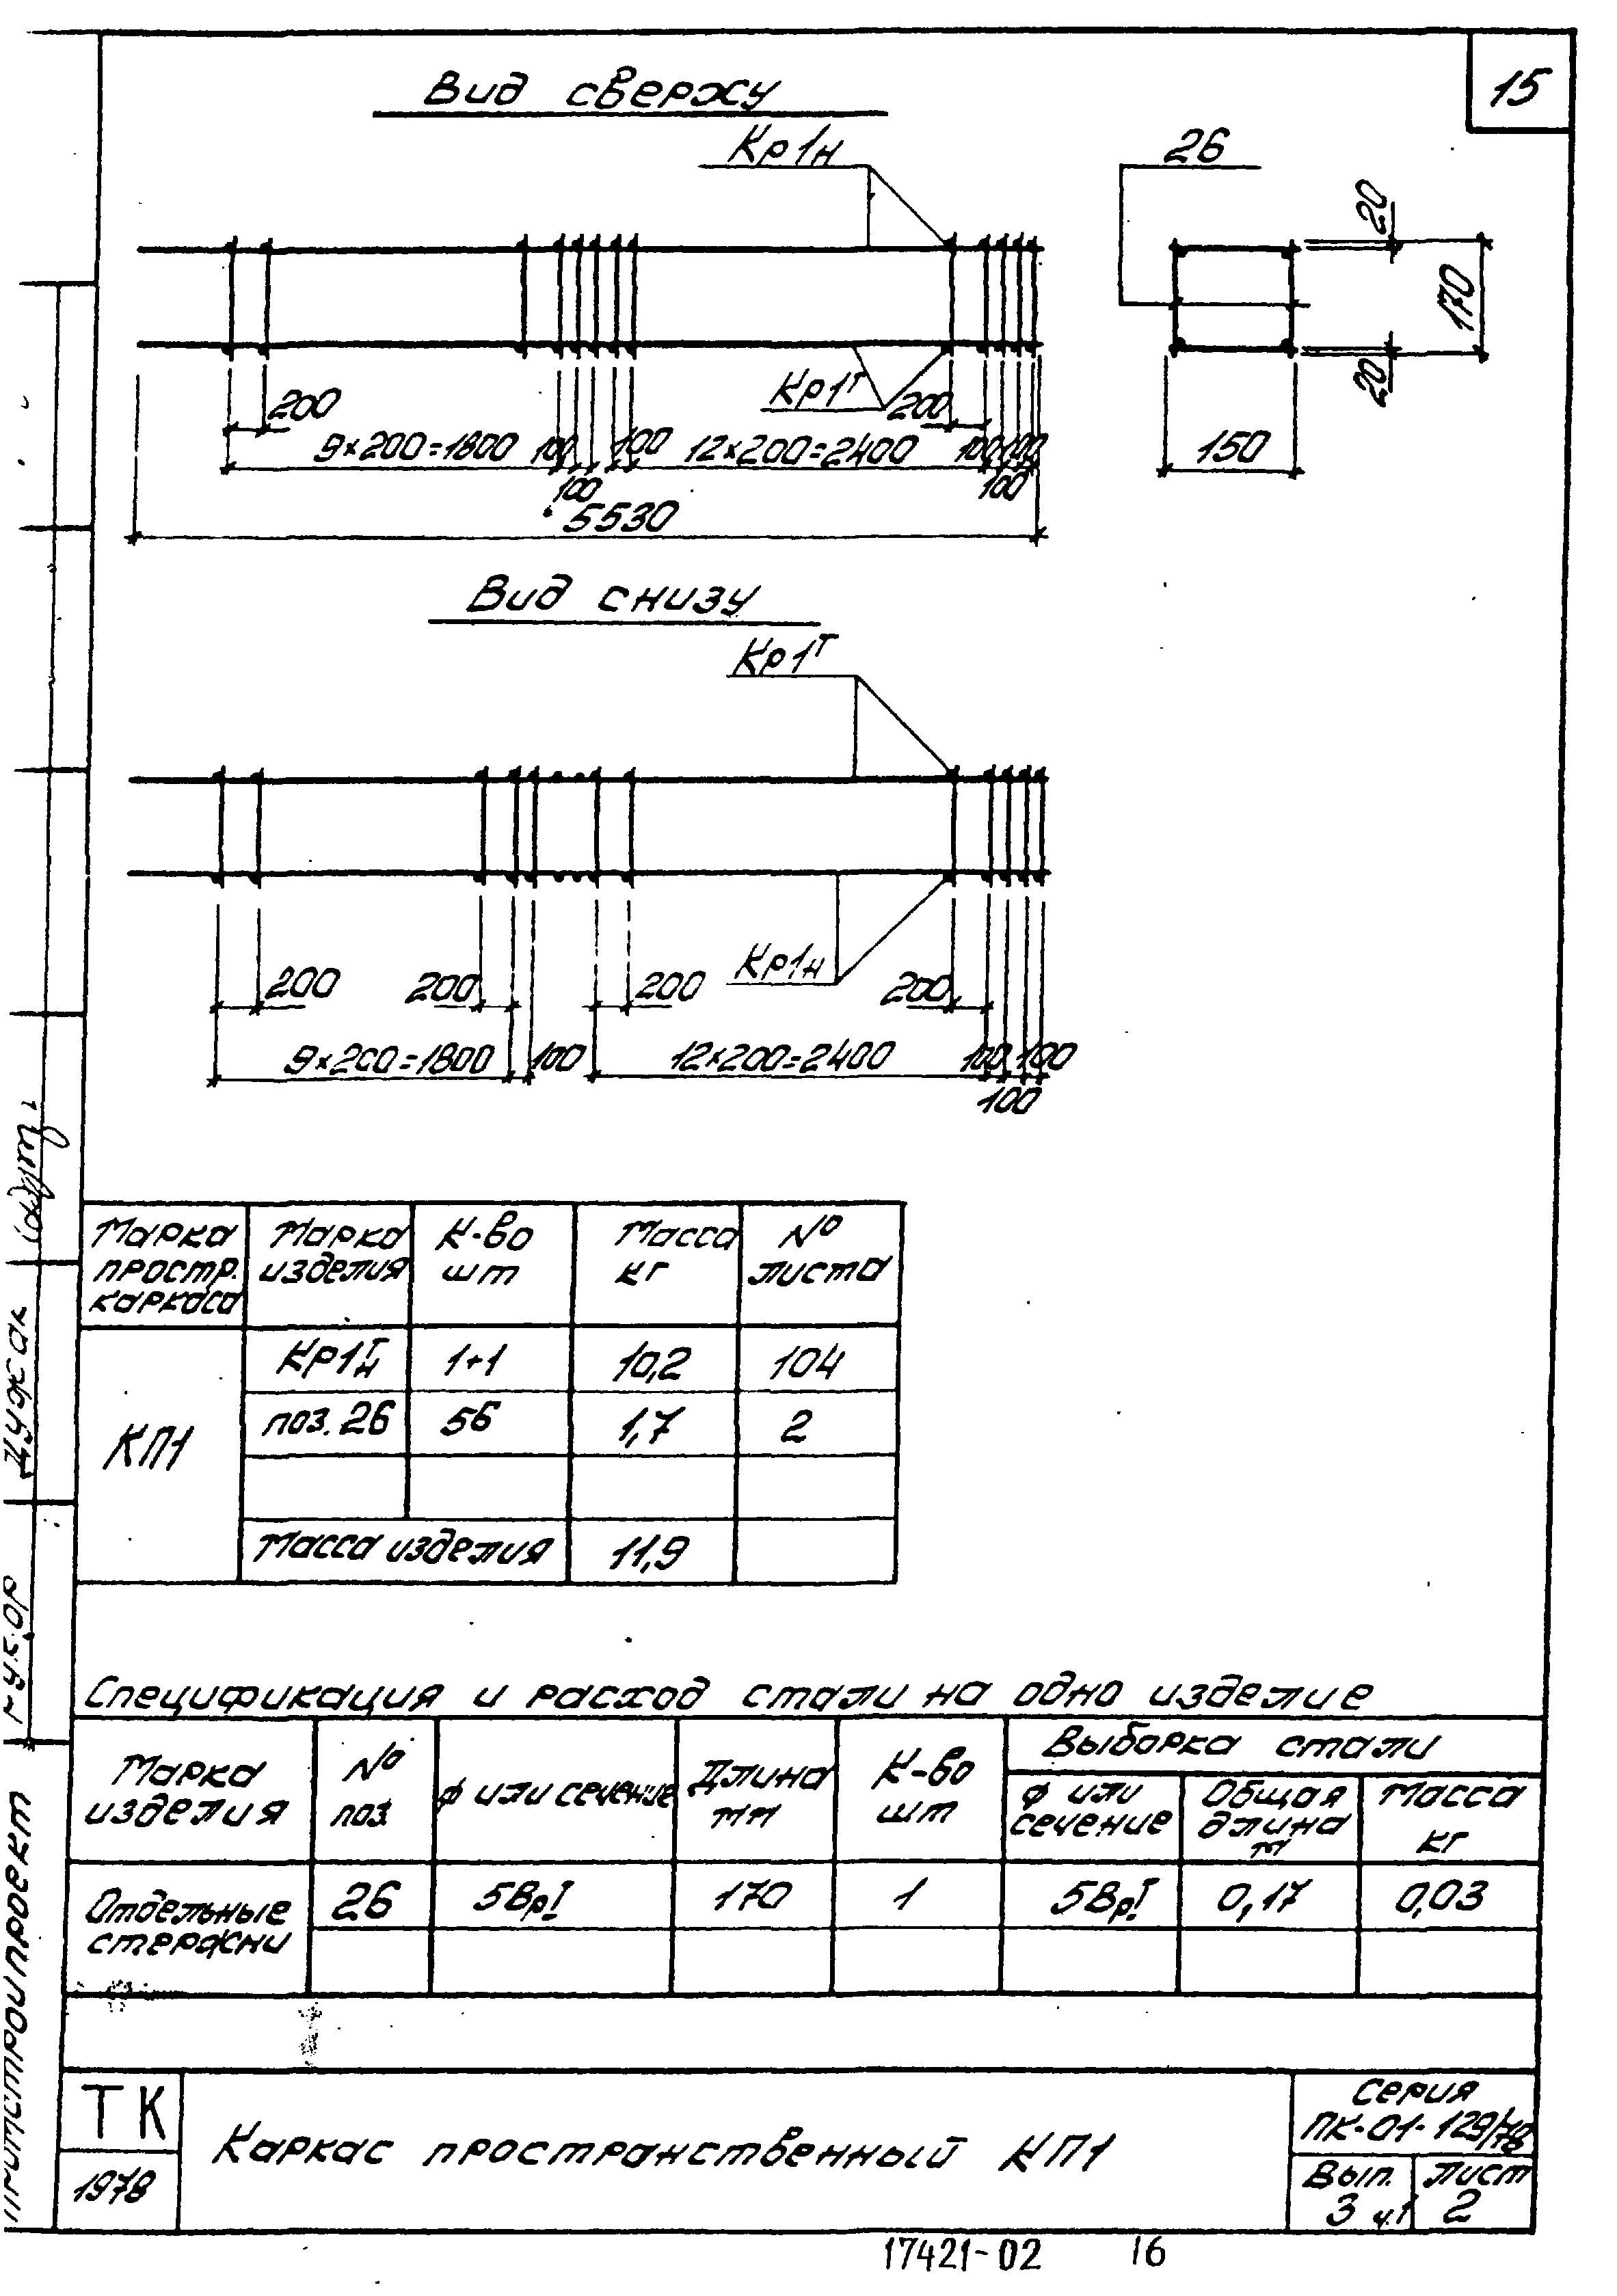 15
Вид сверху
Кр1н
26
20
170
20
150
Кр1т
200
200
9×200=1800
100
100
100
12×200=2400
100
100
100
5530
Вид снизу
Кр1т
Кр1н
200
200
200
200
9×200=1800
100
12×200=2400
100
100
100
Марка простр. каркаса
Марка изделия
К-во шт
Масса кг
№ листа
КП1
Кр1т н
1+1
10,2
104
поз. 26
56
1,7
2
Масса изделия
11,9
Спецификация и расход стали на одно изделие
Марка изделия
№ поз.
ф или сечение
Длина мм
К-во шт
Выборка стали
ф или сечение
Общая длина м
Масса кг
Отдельные стержни
26
5ВрI
170
1
5ВрI
0,17
0,03
ТК
1978
Каркас пространственный КП1
Серия
ПК-01-129/78
Вып.
3 ч.1
Лист
2
17421-02
16